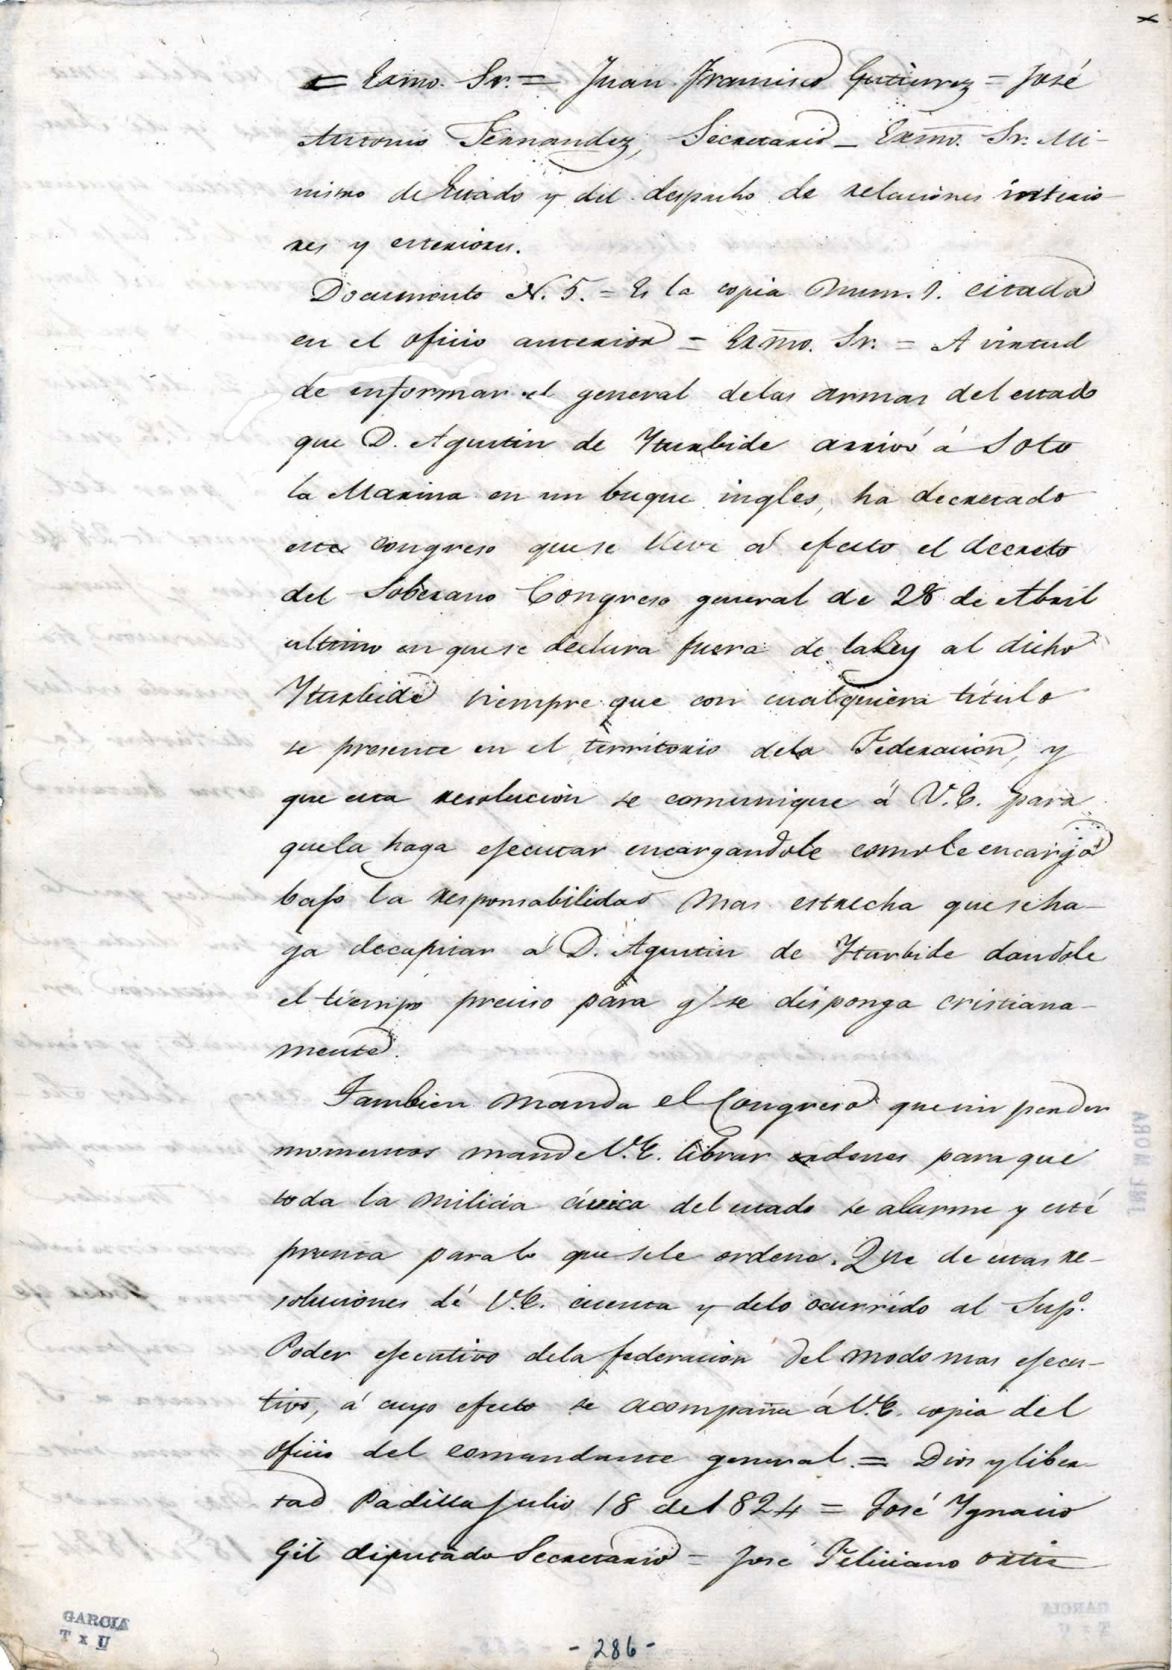 = Exmo. Sr. = Juan Francisco Gutierrez = José
Antonio Fernandez, Secretario - Exmo. Sr. Mi-
nistro de Estado y del despacho de relaciones interio-
res y esteriores.
Documento N. 5. = Es la copia Num. 1. citada
en el oficio anterior = Exmo. Sr. = A virtud
de enformar el general delas armas del estado
que D. Agustin de Yturbide arrivó á Soto
la Marina en un buque ingles, ha decretado
este Congreso quese lleve á efecto el decreto
del Soberano Congreso general de 28 de Abril
ultimo en quese declara fuera de laley al dicho
Yturbide siempre que con cualquiera título
se presente en el territorio dela Federacion, y
que esta resolucion se comunique á V.E. para
quela haga ejecutar encargandole comole encarga
bajo la responsabilidad mas estrecha queseha-
ga decapitar á D. Agustin de Yturbide dandole
el tiempo preciso para q/ se disponga cristiana-
mente.
Tambien manda el Congreso quesin perder
momentos mande V.E. librar ordenes para que
toda la milicia civica del estado se alarme y esté
pronta paralo que sele ordene. Que de estas re-
soluciones dé V.E. cuenta y delo ocurrido al Supo.
Poder ejecutivo dela federacion del modo mas ejecu-
tivo, á cuyo efecto se acompaña á V.E. copia del
oficio del comandante general = Dios y liber-
tad Padilla Julio 18 de 1824 = José Ygnacio
Gil diputado Secretario = José Feliciano Ortiz
GARCIA
T x U
- 286 -